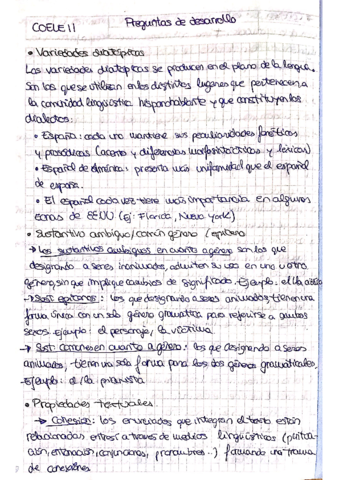 COELE II Preguntas de desarrollo
• Variedades diatópicas
Las variedades diatópicas se producen en el plano de la lengua.
Son las que se utilizan en los distintos lugares que pertenecen a
la comunidad lingüística hispanohablante y que constituyen los
dialectos:
• España: cada uno mantiene sus peculiaridades fonéticas
y prosódicas (acento y diferencias morfosintácticas y léxicas)
• Español de América: presenta más uniformidad que el español
de españa.
• El español cada vez tiene más importancia en algunas
zonas de EEUU (ej: Florida, Nueva York)
• Sustantivo ambiguo/común género / epiceno
→ Los sustantivos ambiguos en cuanto a género son los que
designando a seres inanimados, admiten su uso en uno u otro
género, sin que implique cambios de significado. Ejemplo: el/la
→ Sust. epicenos: los que designando a seres animados tienen una
forma única con un solo género gramatical para referirse a ambos
sexos. Ejemplo: el personaje, la víctima.
→ Sust. comunes en cuanto a género: los que designando a seres
animados, tienen una sola forma para los dos géneros gramaticales.
Ejemplo: el/la pianista
• Propiedades textuales
→ Cohesión: los enunciados que integran el texto están
relacionados entre sí a través de medios lingüísticos (puntua-
ción, entonación, conjunciones, pronombres...) formando una trama
de conexiones